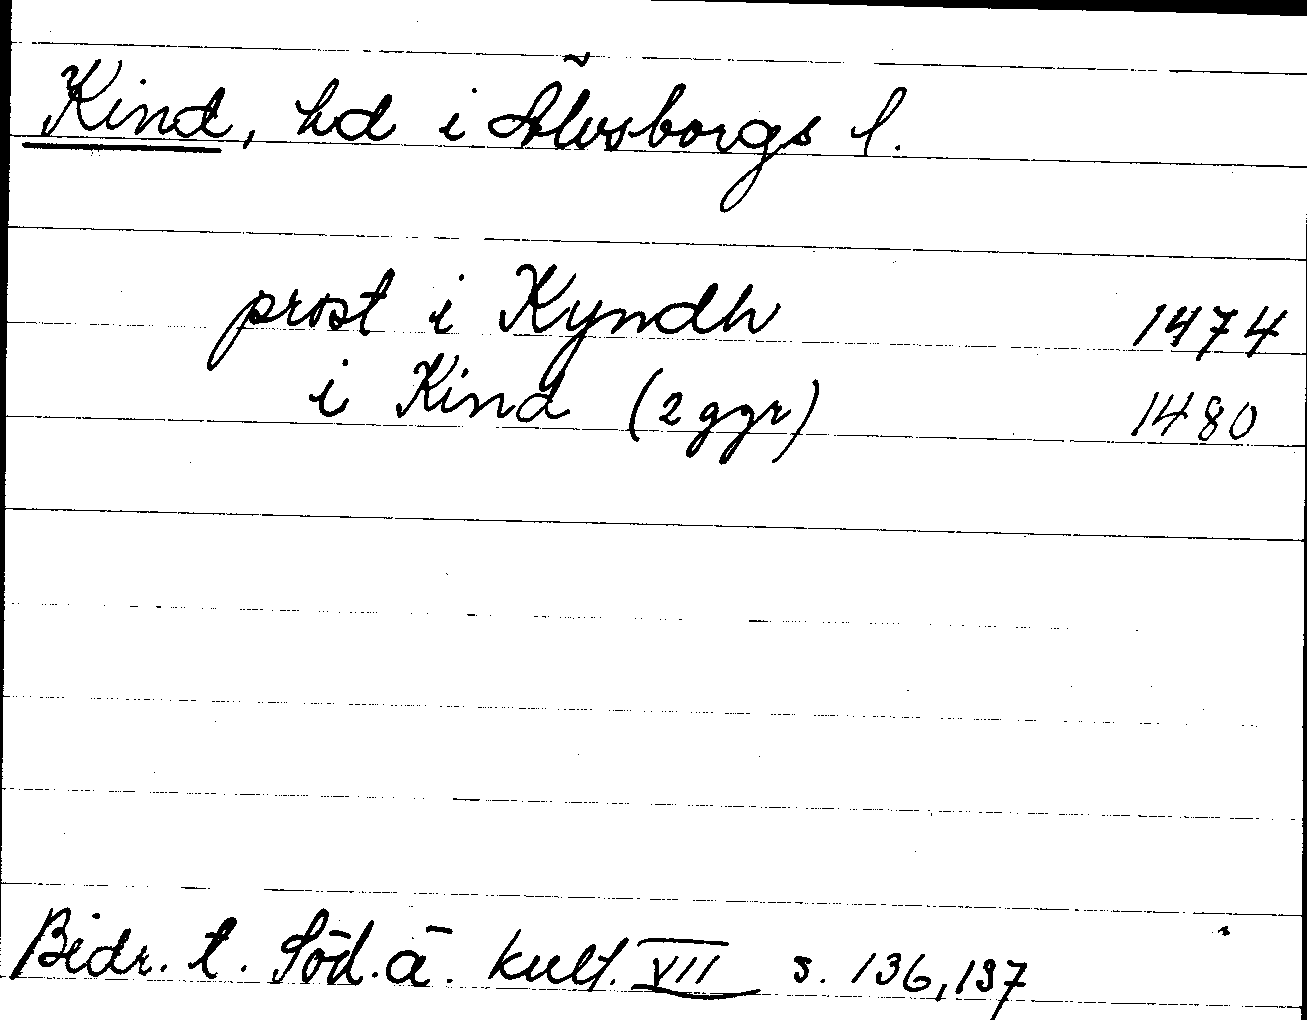 Kind, hd i Älvsborgs l.
prost i Kyndh 1474
i Kind (2 ggr) 1480
Bidr. t. Söd. ä. kult. VII s. 136, 137